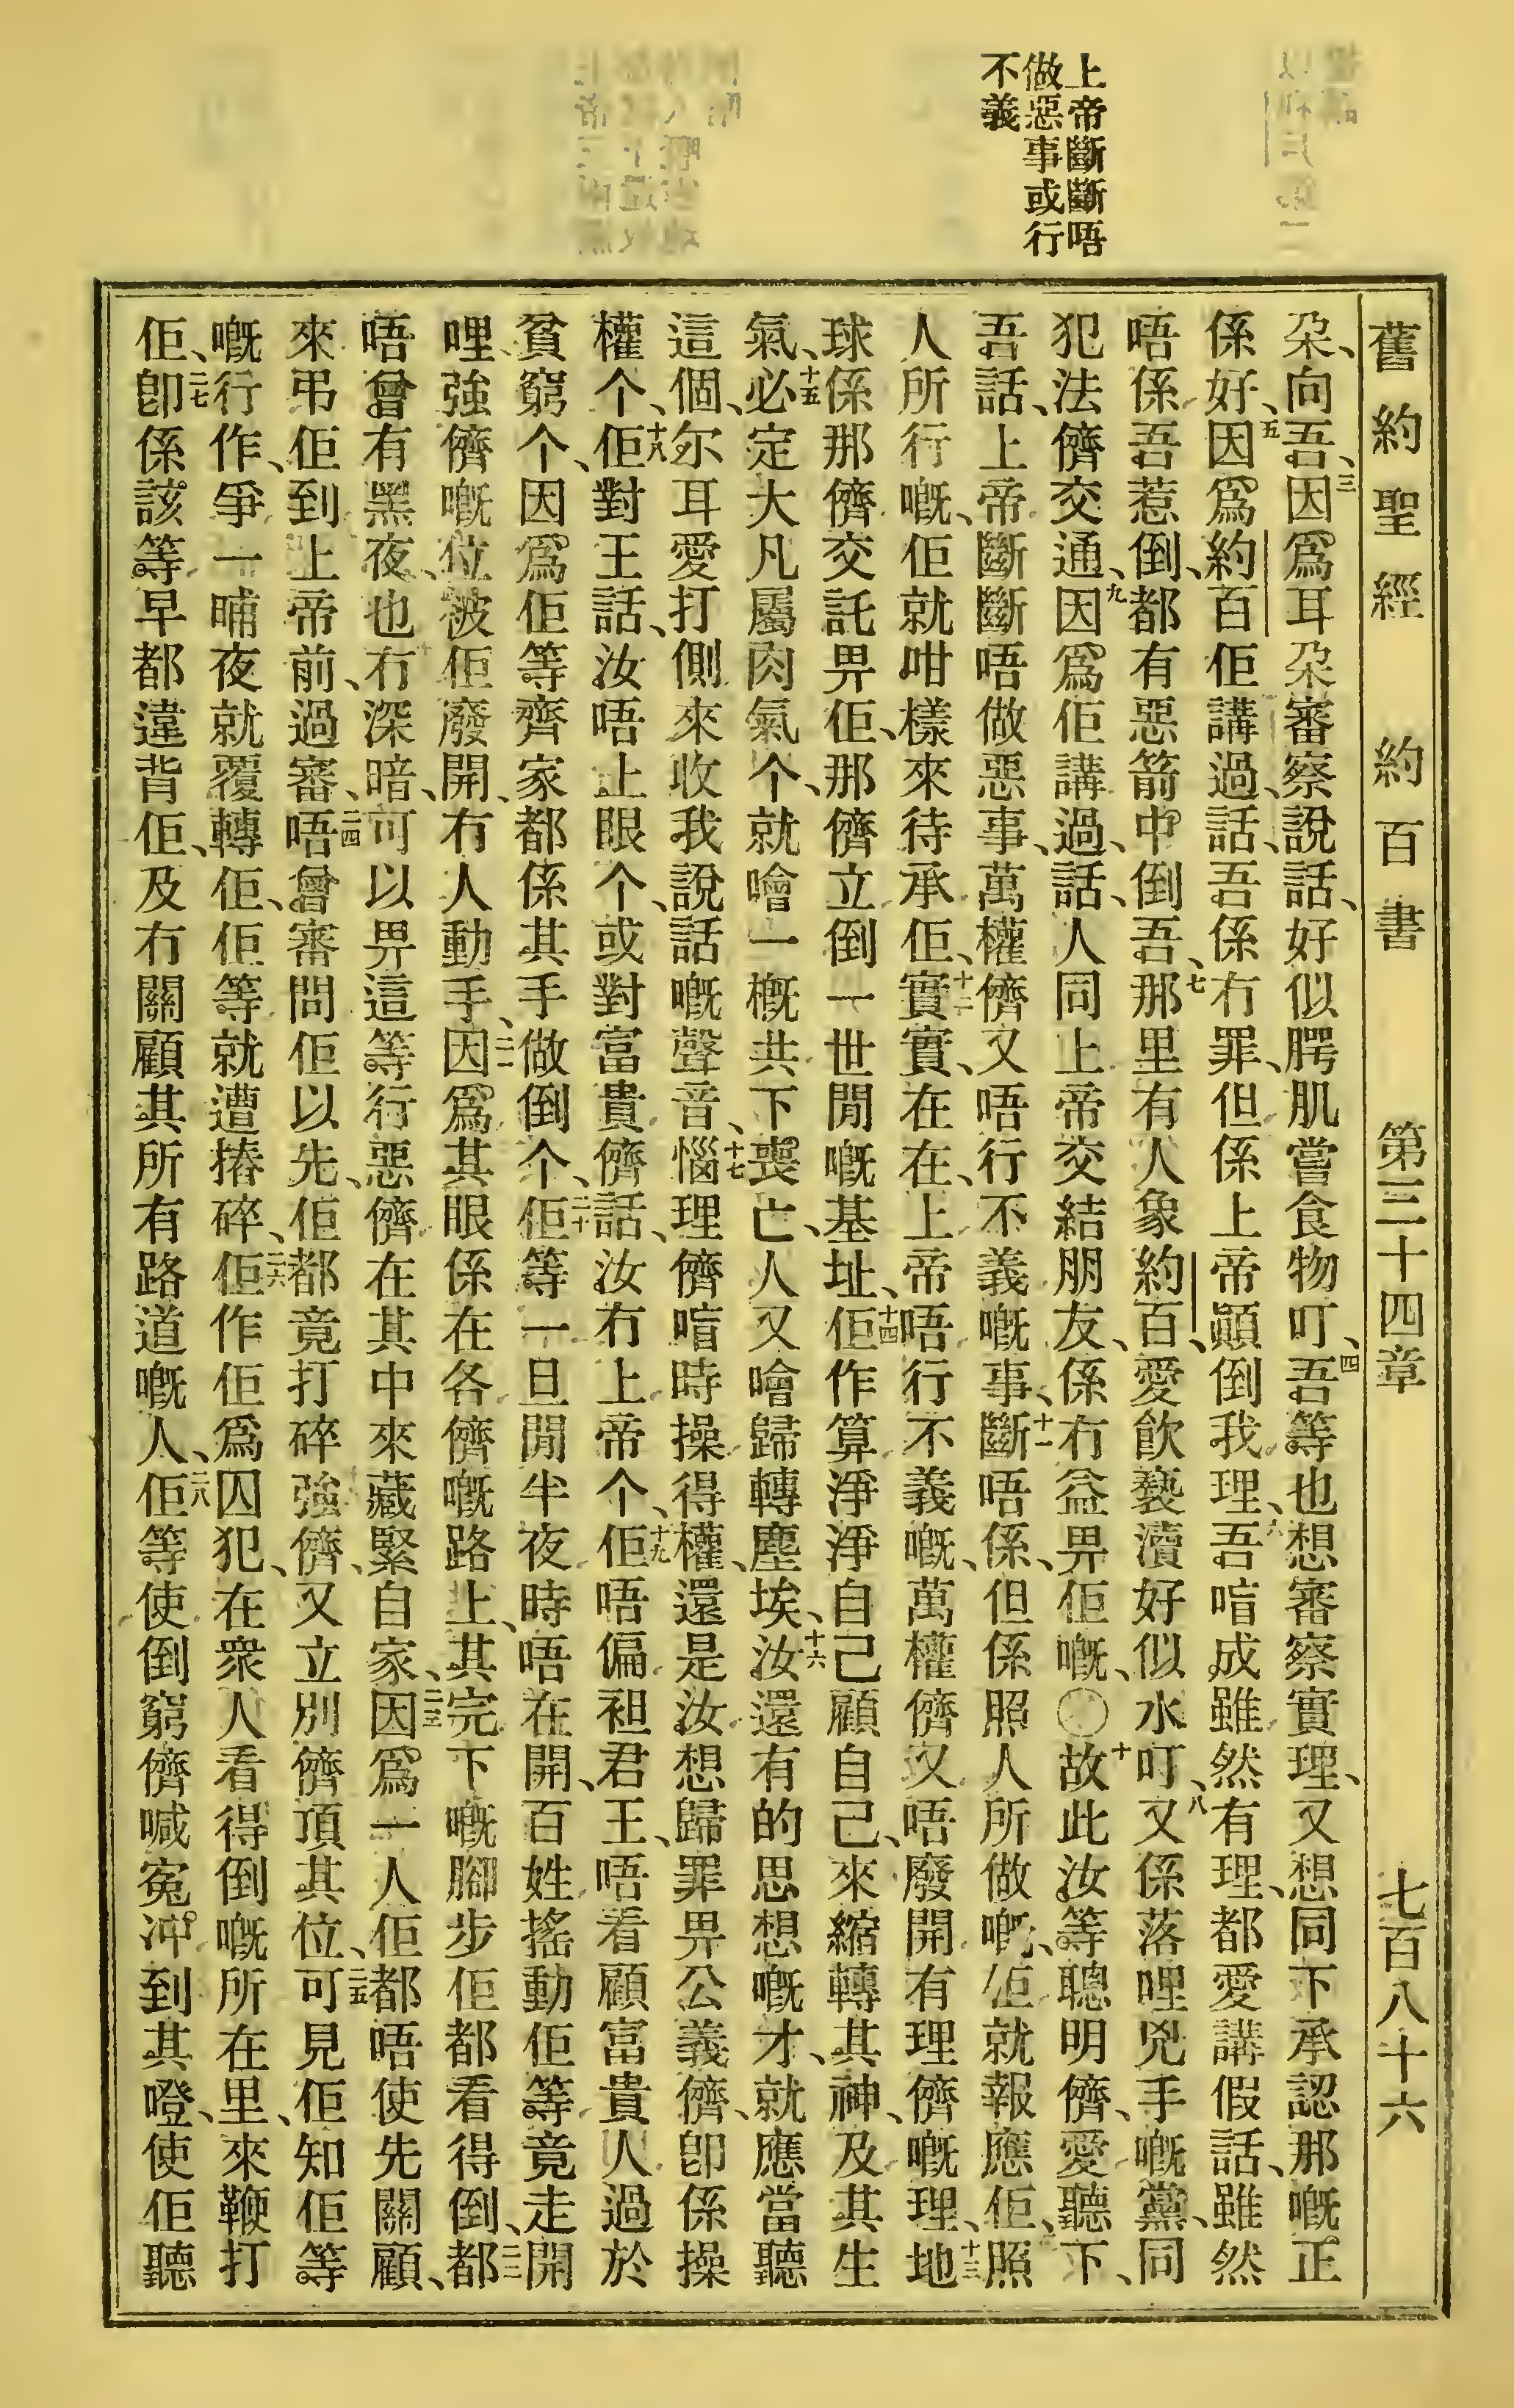 上帝斷斷唔
做惡事或行
不義
舊約聖經 約百書 第三十四章 七百八十六
朶、向吾、三因爲耳朶審察說話、好似腭肌嘗食物叮、四吾等也想審察實理、又想同下承認那嘅正
係好、五因爲約百佢講過、話、吾係冇罪、但係上帝顚倒我理、六吾喑成雖然有理、都愛講假話、雖然
唔係吾惹倒、都有惡箭中倒吾、七那里有人象約百、愛飲褻瀆好似水叮、八又係落哩兇手嘅黨、同
犯法儕交通、九因爲佢講過、話、人同上帝交結朋友、係冇益畀佢嘅、〇十故此汝等聰明儕、愛聽下
吾話、上帝斷斷唔做惡事、萬權儕又唔行不義嘅事、十一斷唔係、但係照人所做嘅、佢就報應佢、照
人所行嘅、佢就咁樣來待承佢、十二實實、在在、上帝唔行不義嘅、萬權儕又唔廢開有理儕嘅理、十三地
球係那儕交託畀佢、那儕立倒一世閒嘅基址、十四佢作算淨淨自己顧自己、來縮轉其神、及其生
氣、十五必定大凡屬肉氣个、就噲一槪共下喪亡、人又噲歸轉塵埃、十六汝還有的思想嘅才、就應當聽
這個、尔耳愛打側來收我說話嘅聲音、十七惱理儕喑時操得權、還是汝想歸罪畀公義儕、卽係操
權个、十八佢對王話、汝唔止眼个、或對富貴儕話、汝冇上帝个、十九佢唔偏袒君王、唔看顧富貴人過於
貧窮个、因爲佢等齊家都係其手做倒个、二十佢等一旦閒半夜時唔在開、百姓搖動佢等竟走開
哩、強儕嘅位被佢廢開、冇人動手、二一因爲其眼係在各儕嘅路上、其完下嘅腳步佢都看得倒、二二都
唔曾有黑夜、也冇深暗、可以畀這等行惡儕在其中來藏緊自家、二三因爲一人佢都唔使先關顧、
來弔佢到上帝前、過審、二四唔曾審問佢以先、佢都竟打碎強儕、又立別儕頂其位、二五可見佢知佢等
嘅行作、爭一晡夜就覆轉佢、佢等就遭摏碎、二六佢作佢爲囚犯、在衆人看得倒嘅所在里、來鞭打
佢、二七卽係該等早都違背佢、及冇關顧其所有路道嘅人、二八佢等使倒窮儕喊寃冲到其嶝、使佢聽